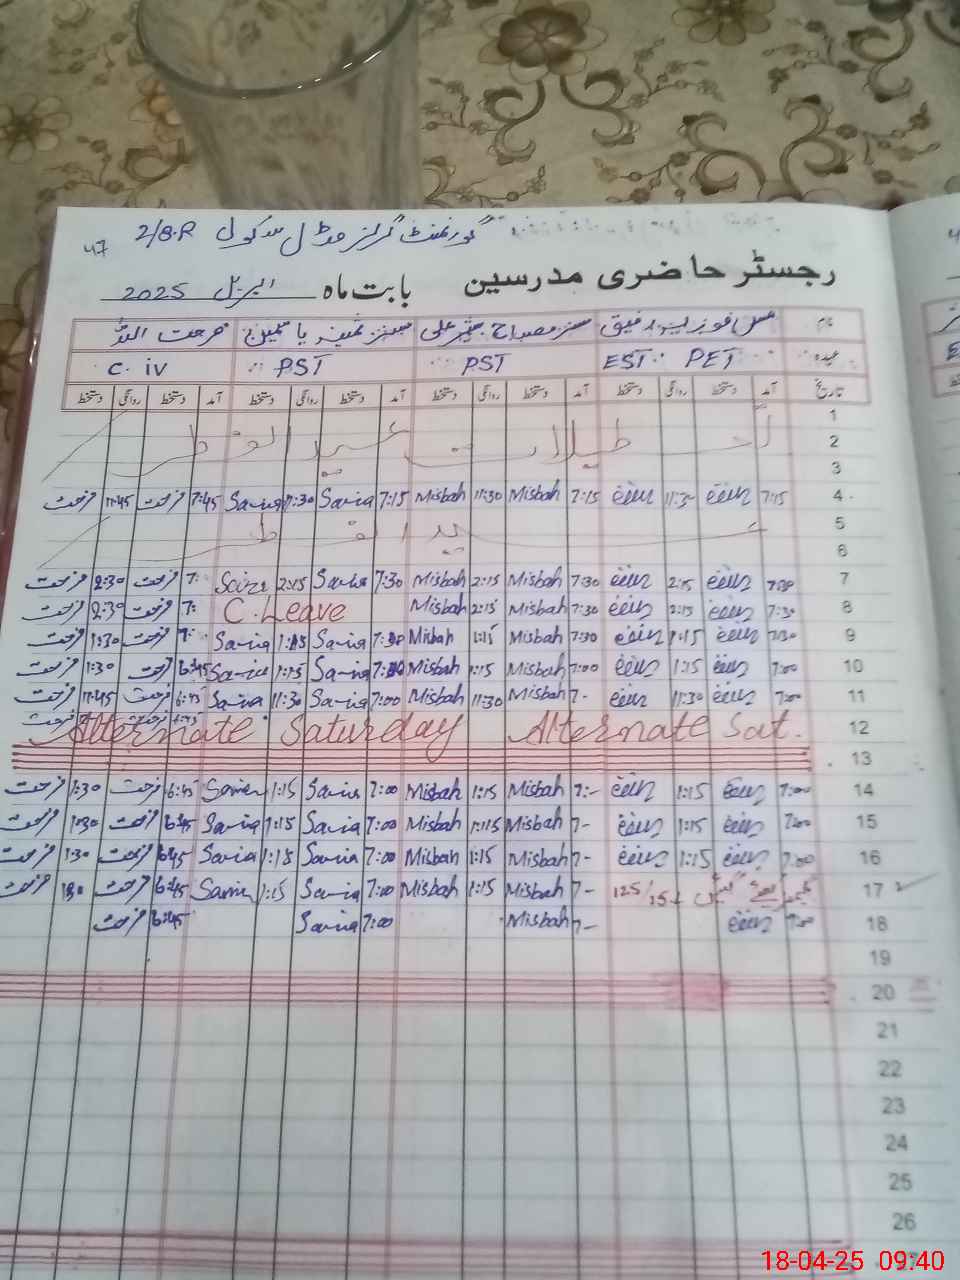 47 گورنمنٹ گرلز مڈل سکول 2/8.R
رجسٹر حاضری مدرسین بابت ماہ اپریل 2025
نام مس فوزیہ رفیق مسز مصباح علی مسز ثمینہ یاسمین فرحت
عہدہ EST PET PST PST C. iv
تاریخ آمد دستخط روانگی دستخط آمد دستخط روانگی دستخط آمد دستخط روانگی دستخط آمد دستخط روانگی دستخط
1
2 تعطیلات عید الفطر
3
4 7:15 11:30 7:15 Misbah 11:30 Misbah 7:15 Savia 11:30 Savia 7:45 فرحت 11:45 فرحت
5 عید الفطر
6
7 7:30 2:15 7:30 Misbah 2:15 Misbah 7:30 Savia 2:15 7: فرحت 2:30 فرحت
8 7:30 2:15 7:30 Misbah 2:15 Misbah C. Leave 7: فرحت 2:30 فرحت
9 7:30 1:15 7:30 Misbah 1:15 Misbah 7:30 Savia 1:15 Savia 7: فرحت 1:30 فرحت
10 7:00 1:15 7:00 Misbah 1:15 Misbah 7:00 Savia 1:15 Savia 6:45 فرحت 1:30 فرحت
11 7:00 11:30 7- Misbah 11:30 Misbah 7:00 Savia 11:30 Savia 6:45 فرحت 11:45 فرحت
12 Alternate Saturday Alternate Sat.
13
14 7:00 1:15 7:- Misbah 1:15 Misbah 7:00 Savia 1:15 Savia 6:45 فرحت 1:30 فرحت
15 7:00 1:15 7- Misbah 1:15 Misbah 7:00 Savia 1:15 Savia 6:45 فرحت 1:30 فرحت
16 7:00 1:15 7- Misbah 1:15 Misbah 7:00 Savia 1:15 Savia 6:45 فرحت 1:30 فرحت
17 7- Misbah 1:15 Misbah 7:00 Savia 1:15 Savia 6:45 فرحت 1:30 فرحت
18 7:00 7- Misbah 7:00 Savia 6:45 فرحت
19
20
21
22
23
24
25
26
18-04-25 09:40